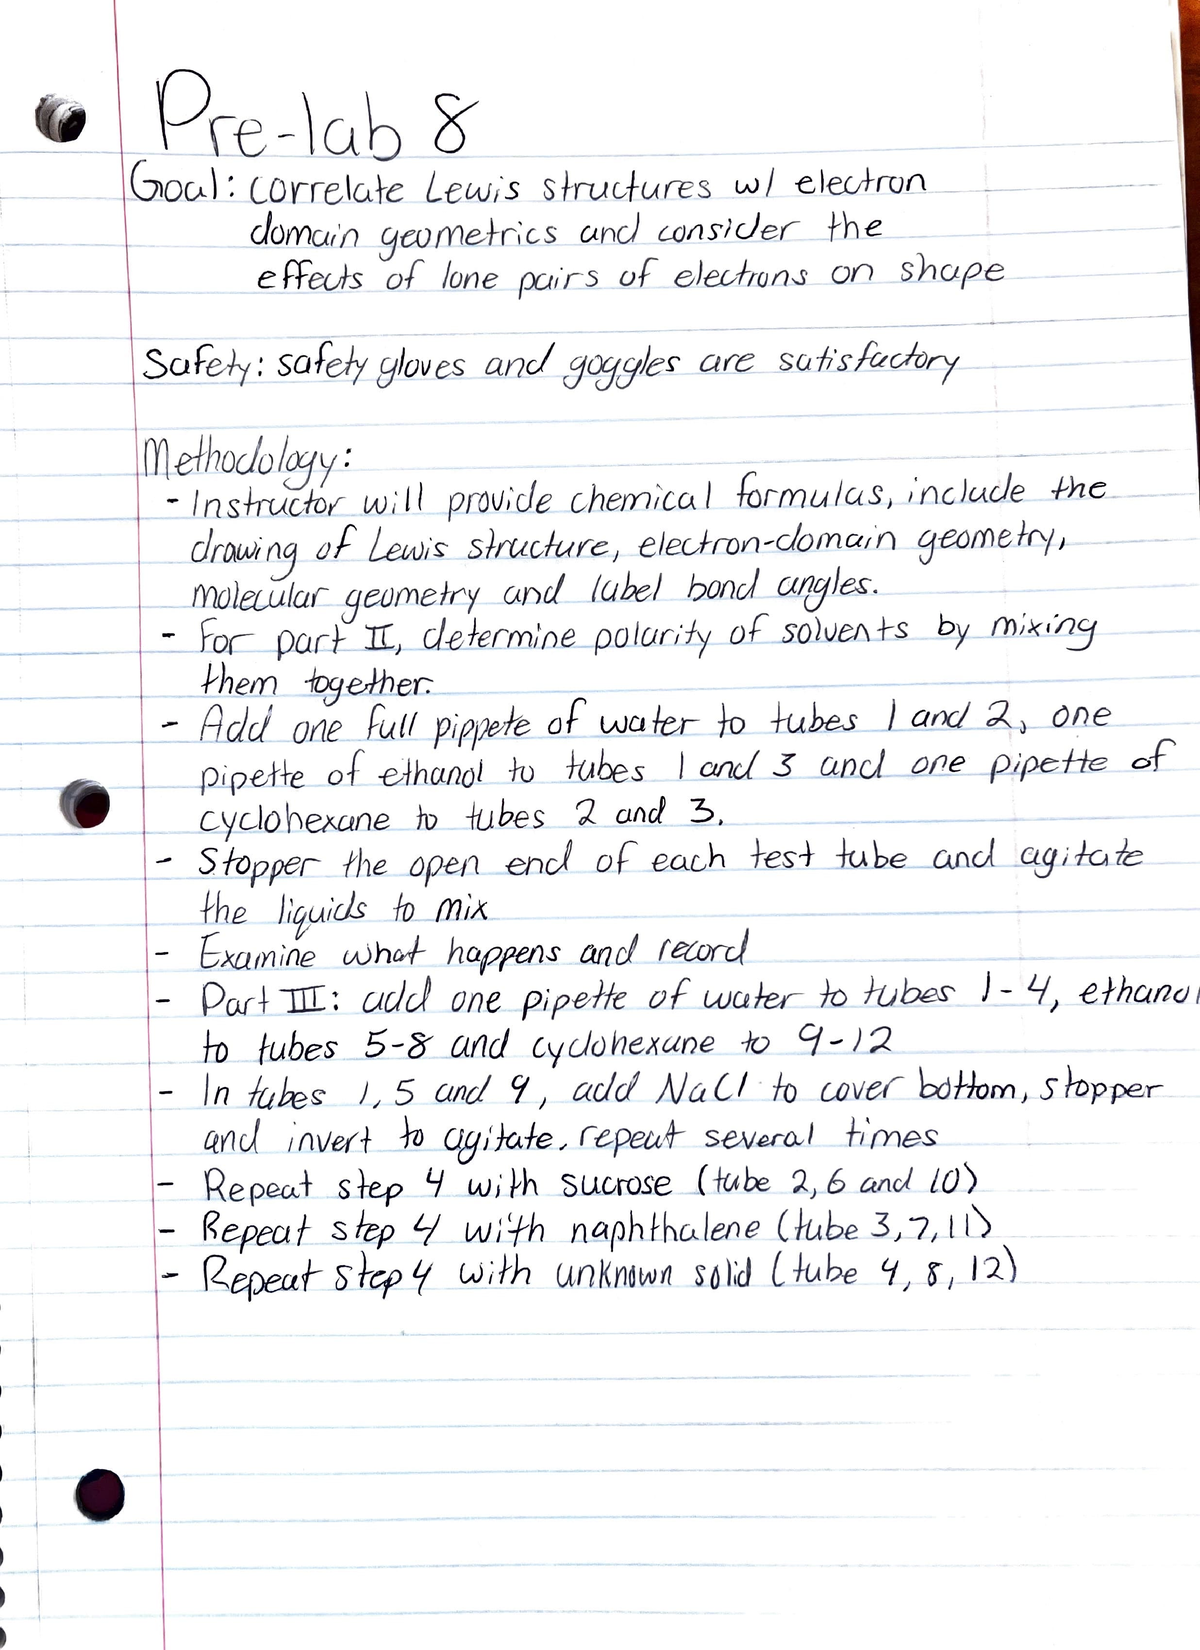 Pre-lab 8
Goal: correlate Lewis structures w/ electron
domain geometrics and consider the
effects of lone pairs of electrons on shape
Safety: safety gloves and goggles are satisfactory
Methodology:
- Instructor will provide chemical formulas, include the
drawing of Lewis structure, electron-domain geometry,
molecular geometry and label bond angles.
- For part II, determine polarity of solvents by mixing
them together.
- Add one full pippete of water to tubes 1 and 2, one
pipette of ethanol to tubes 1 and 3 and one pipette of
cyclohexane to tubes 2 and 3.
- Stopper the open end of each test tube and agitate
the liquids to mix
- Examine what happens and record
- Part III: add one pipette of water to tubes 1-4, ethanol
to tubes 5-8 and cyclohexane to 9-12
- In tubes 1, 5 and 9, add NaCl to cover bottom, stopper
and invert to agitate. repeat several times
- Repeat step 4 with sucrose (tube 2, 6 and 10)
- Repeat step 4 with naphthalene (tube 3, 7, 11)
- Repeat step 4 with unknown solid (tube 4, 8, 12)